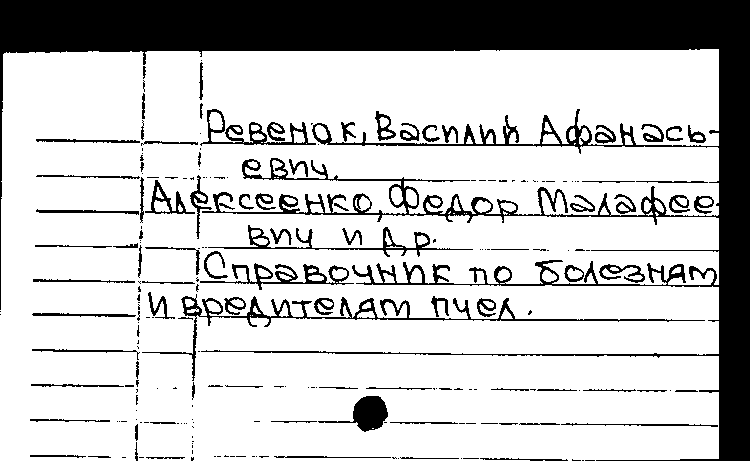 Ревенок, Василий Афанась-
евич.
Алексеенко, Федор Малафее-
вич и др.
Справочник по болезням
и вредителям пчел.